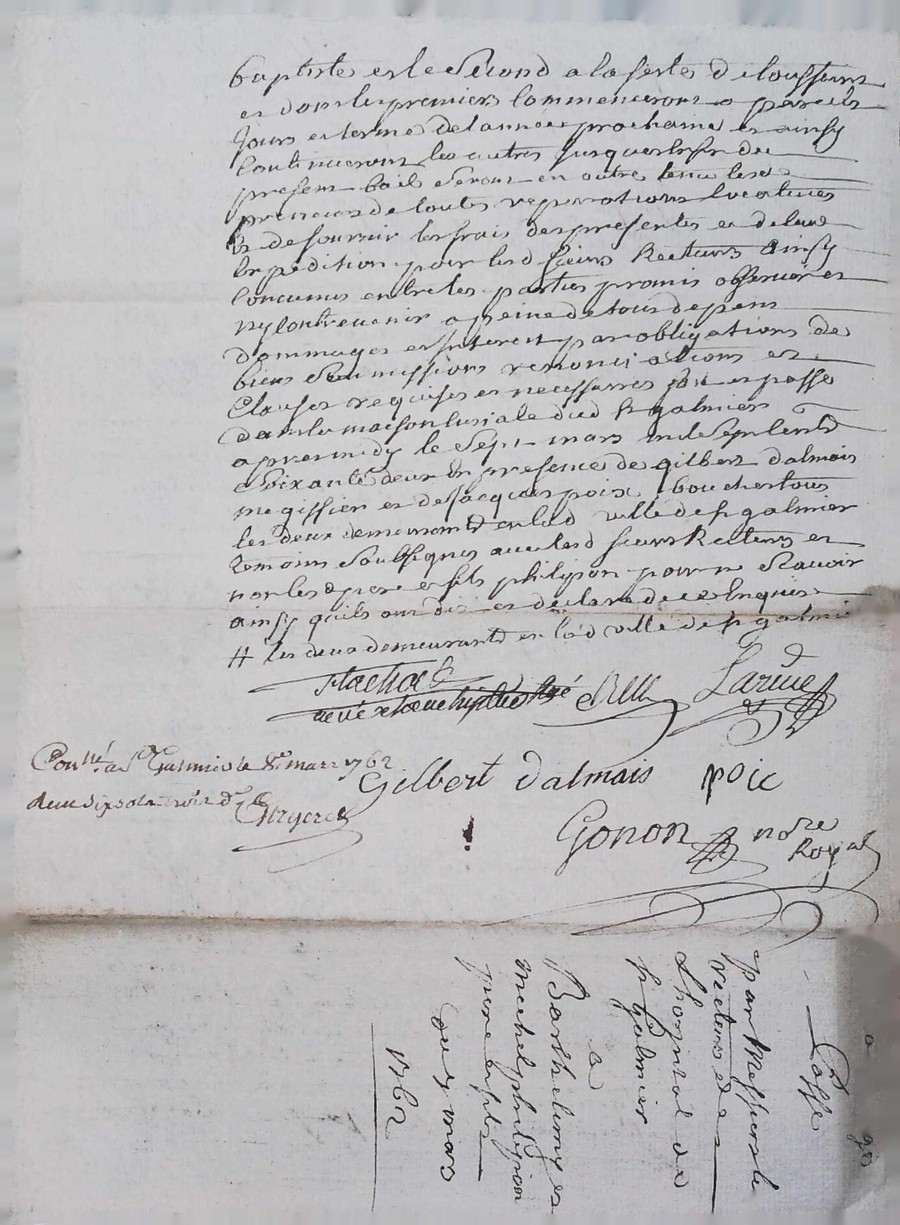 baptiste et le second a la feste de toussaint
et dont les premiers commenceront a pareils
jours et terme de l'année prochaine et ainsy
continueront les autres jusques la fin du
present bail seront en outre tenu lesd
preneurs de toutes reparations locatives
et de fournir les frais des presentes et de leur
expedition pour lesd sieurs Recteurs ainsy
convenus entre les parties promis observer et
ny contrevenir a peine de tous depens
dommages et interest par obligations de
biens soumissions renonciations et
clauses requises et necessaires fait et passé
dans la maison curiale dud st galmier
apres midy le sept mars mil sept cent
soixante deux en presence de gilbert dalmais
megissier et de jacques poix boucher tous
les deux demeurant en lad ville de st galmier
temoins soussignés avec lesd sieurs Recteurs et
non lesd pere et fils philipon pour ne scavoir
ainsy qu'ils ont dit et declaré de ce enquis
# les deux demeurant en lad ville de st galmier
flachat
curé
Larive
Conllé a St Galmier le 8e mars 1762
Gilbert dalmais poix
Gonon nore
Royal
par Messieurs le
recteurs de
L'hopital de
st galmier
a
Barthelemy et
michel philipon
pere et fils
du 7 mars
1762